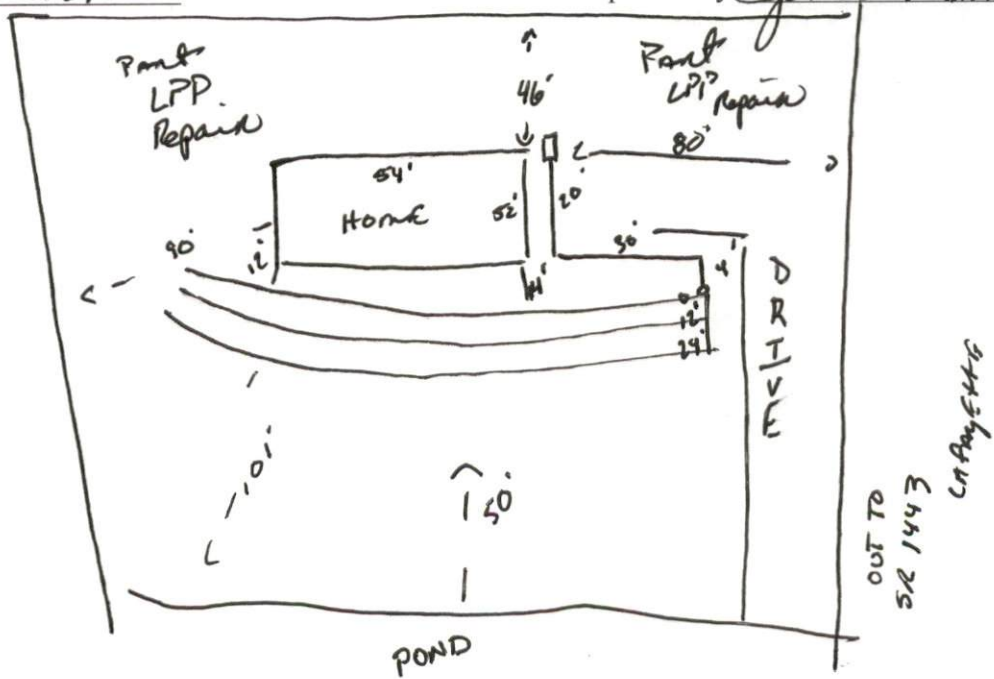 Part
LPP
Repair
46'
Part
LPP Repair
80'
54'
HOME
52'
20'
12'
30'
4'
90'
0'
12'
24'
DRIVE
50'
POND
OUT TO
SR 1443
LAFAYETTE